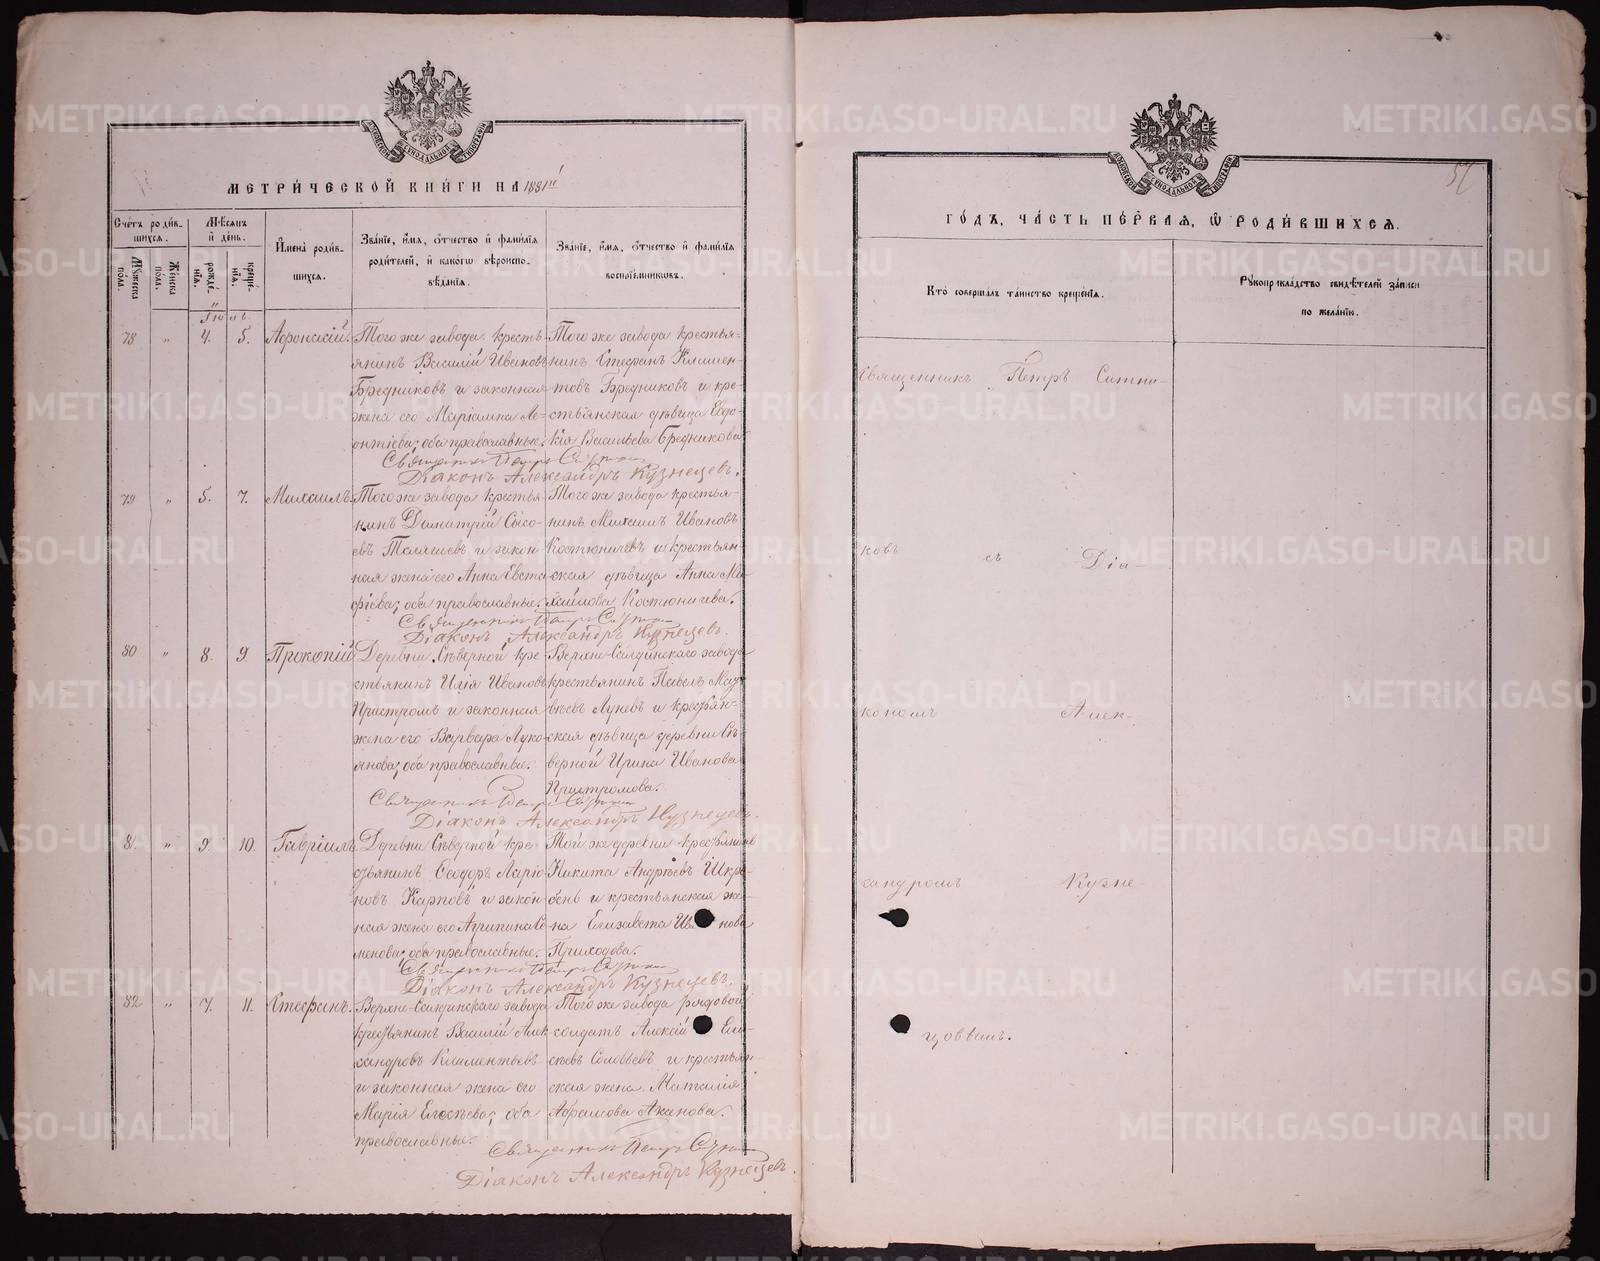 МЕТРИ́ЧЕСКОЙ КНИ́ГИ НА 1881й
Сче́тъ роди́в-
шихся.
Мѣсяцъ
и҆ де́нь.
Мꙋжеска
по́ла.
Же́нска
по́ла.
рожде́-
нїѧ.
креще́-
нїѧ.
Имена̀ роди́в-
шихся.
Зва́нїе, и҆́мя, о҆́тчество и҆ фами́лїя
роди́телей, и҆ како́гѡ вѣроиспо-
вѣ́данїя.
Зва́нїе, и҆́мя, о҆́тчество и҆ фами́лїя
воспрїе́мниковъ.
Іюль
78 " 4. 5. Афонасій.
Того же завода кресть-
янинъ Василій Ивановъ
Бредниковъ и законная
жена его Маріамна Ле-
онтіева; оба православные.
Того же завода крестья-
нинъ Стефанъ Климен-
товъ Бредниковъ и кре-
стьянская дѣвица Евдо-
кія Васильева Бредникова
Священникъ Петръ Ситник
Діаконъ Александръ Кузнецовъ.
79 " 5. 7. Михаилъ.
Того же завода крестья-
нинъ Димитрій Сысо-
евъ Талашевъ и закон-
ная жена его Анна Евста-
фіева; оба православные.
Того же завода крестья-
нинъ Михаилъ Ивановъ
Костюничевъ и крестьян-
ская дѣвица Анна Ми-
хайлова Костюничева.
Священникъ Петръ Ситник
Діаконъ Александръ Кузнецовъ.
80 " 8. 9. Прокопій
Деревни Сѣверной кре-
стьянинъ Илія Ивановъ
Пристромъ и законная
жена его Варвара Луко-
янова; оба православные.
Верхне-Салдинскаго завода
крестьянинъ Павелъ Мат-
вѣевъ Луневъ и крестьян-
ская дѣвица деревни Сѣ-
верной Ирина Иванова
Пристромова.
Священникъ Петръ Ситник
Діаконъ Александръ Кузнецовъ.
81. " 9. 10. Гавріилъ.
Деревни Сѣверной кре-
стьянинъ Ѳеодоръ Ларіо-
новъ Карповъ и закон-
ная жена его Агрипина Се-
менова; оба православные.
Той же деревни крестьянинъ
Никита Андрѣевъ Шкра-
бень и крестьянская же-
на Елизавета Иванова
Приходова.
Священникъ Петръ Ситник
Діаконъ Александръ Кузнецовъ.
82 " 7. 11. Стефанъ.
Верхне-Салдинскаго завода
крестьянинъ Василій Алек-
сандровъ Климентьевъ
и законная жена его
Марія Елосѣева; оба
православные.
Того же завода рядовой
солдатъ Алексій Ели-
сѣевъ Соловьевъ и крестьян-
ская жена Наталія
Абрамова Аканова.
Священникъ Петръ Ситник
Діаконъ Александръ Кузнецовъ.
57
ГО́ДЪ, ЧА́СТЬ ПЕ́РВАЯ, Ѡ҆ РОДИ́ВШИХСЯ.
Кто̀ соверша́лъ та́инство креще́нїя.
Рꙋкоприкла́дство свидѣ́телей за́писи
по жела́нїю.
Священникъ Петръ Ситни-
ковъ съ Діа-
кономъ Алек-
сандромъ Кузне-
цовымъ.